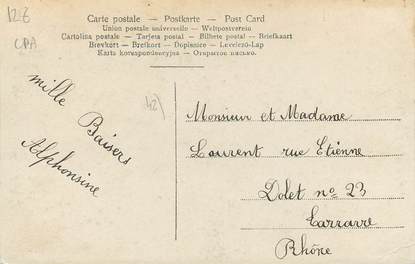 12.8
CPA
Carte postale — Postkarte — Post Card
Union postale universelle — Weltpostverein
Cartolina postale — Tarjeta postal — Bilhete postal — Briefkaart
Brevkort — Brefkort — Dopisnice — Levelező-Lap
Karta korespondencyjna — Открытое письмо.
mille Baisers
Alphonsine
42)
Monsieur et Madame
Laurent rue Etiènne
Dolet nº 23
Tarrare
Rhône